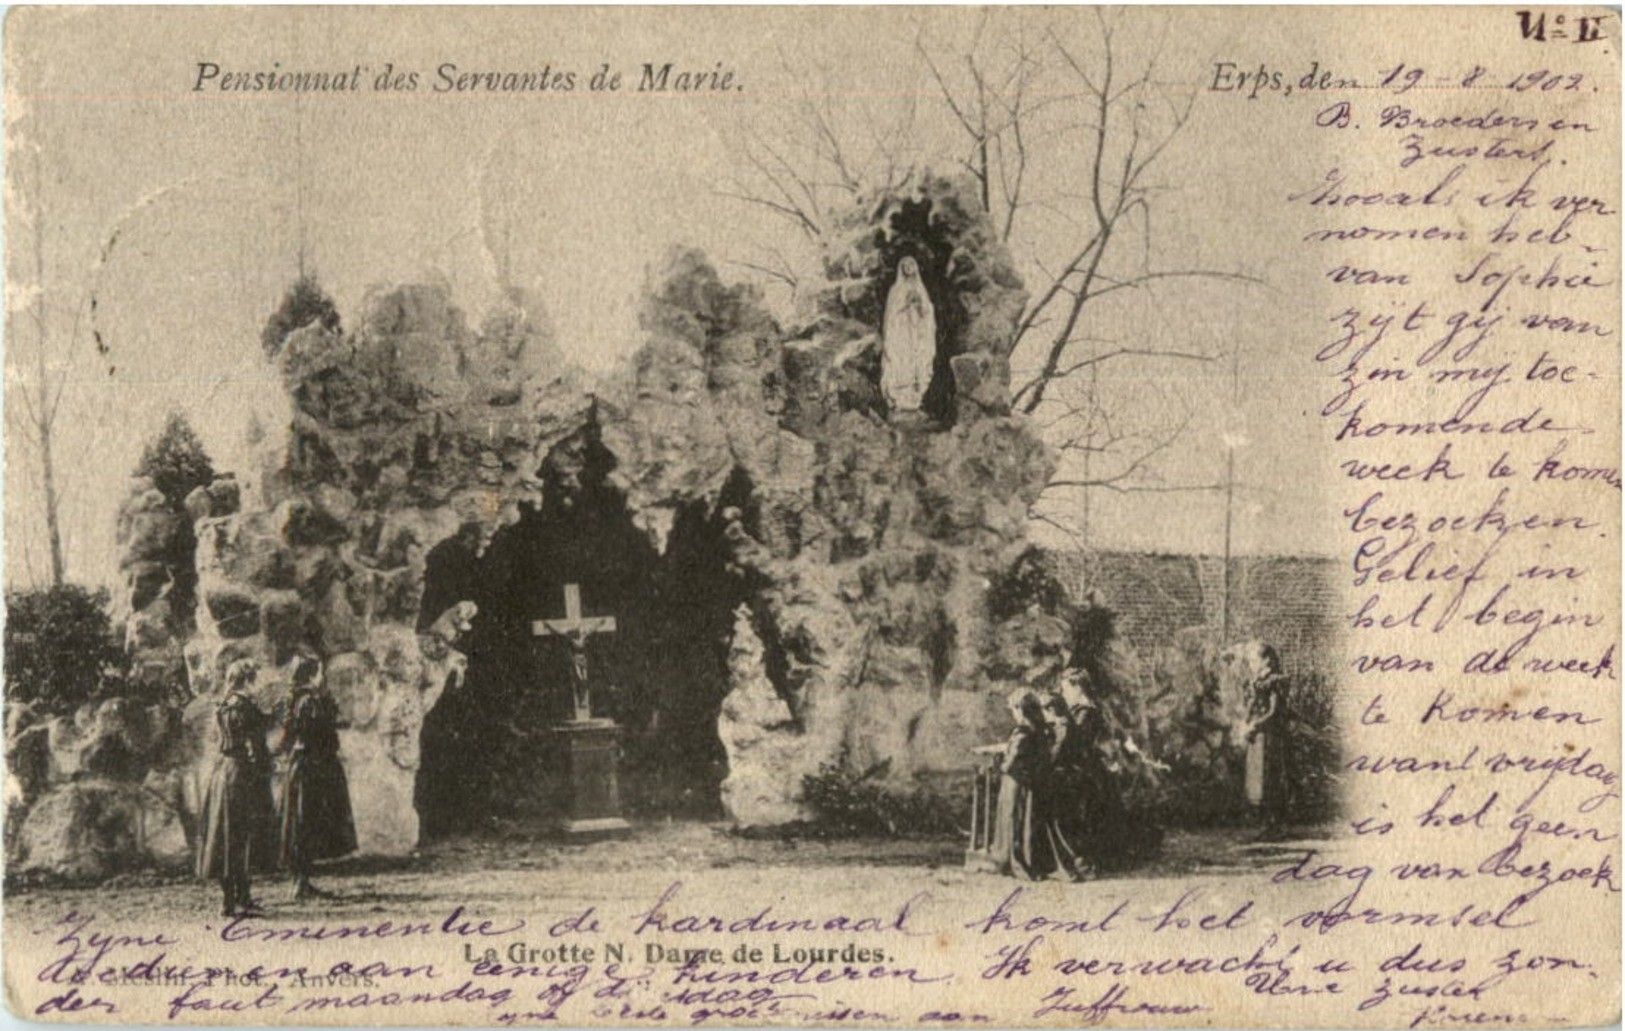 No II.
Pensionnat des Servantes de Marie.
Erps, den 19-8-1902.
B. Broeders en
Zusters.
Zooals ik ver
nomen heb
van Sophie
zijt gij van
zin mij toe-
komende
week te komen
bezoeken.
Gelief in
het begin
van de week
te komen
want vrijdag
is het geen
dag van bezoek
Zyne Eminentie de kardinaal komt het vormsel
toedienen aan eenige kinderen. Ik verwacht u dus zon-
der faut maandag of
Uwe zuster
aan Juffrouw
La Grotte N. Dame de Lourdes.
Phot. Anvers.